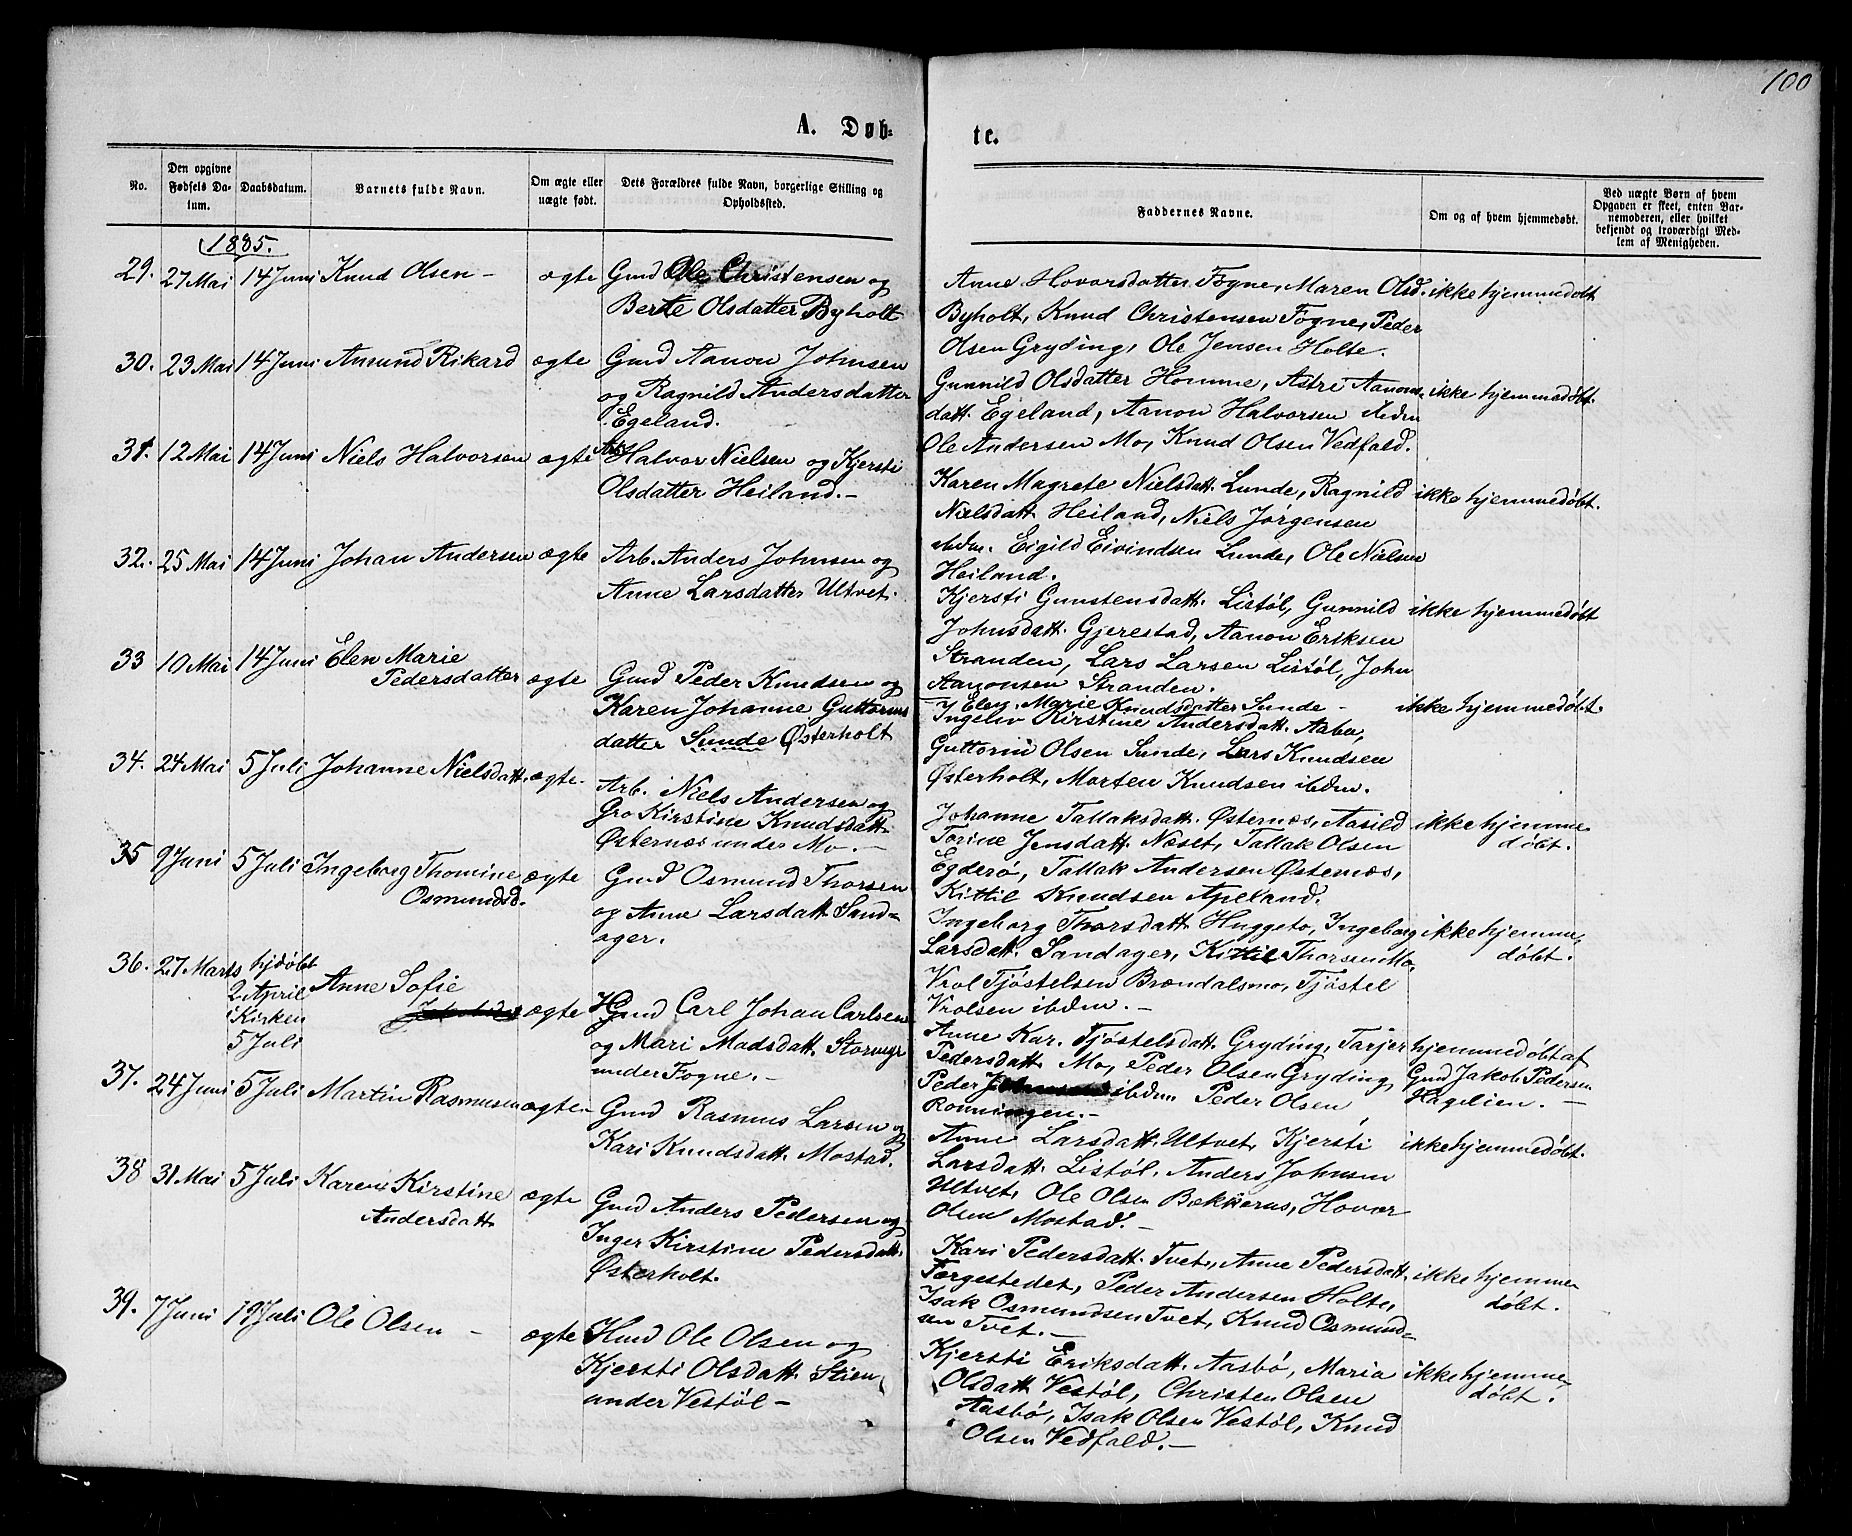 100
A. Døb-
te.
No.
Den opgivne Fødsels Da-tum.
Daabsdatum.
Barnets fulde Navn.
Om ægte eller uægte født.
Dets Forældres fulde Navn, borgerlige Stilling og Opholdssted.
Faddernes Navne.
Om og af hvem hjemmedøbt.
Ved uægte Børn af hvem Opgaven er skeet, enten Bar-nemoderen, eller hvilket bekjendt og troværdigt Med-lem af Menigheden.
1885.
29. 27 Mai 14 Juni Knud Olsen - ægte Gmd Ole Christensen og
Berte Olsdatter Byholt
Anne Hovorsdatter Fogne, Maren Olsd. ikke hjemmedøbt
Byholt, Knud Christensen Fogne, Peder
Olsen Gryding, Ole Jensen Holte.
30. 23 Mai 14 Juni Amund Rikard ægte Gmd Aanon Johnsen
og Ragnild Andersdatter
Egeland.
Gunnild Olsdatter Homme, Astri Aanons- ikke hjemmedøbt.
datt. Egeland, Aanon Halvorsen ibdm
Ole Andersen Mo, Knud Olsen Vedfald.
31. 12 Mai 14 Juni Niels Halvorsen ægte Arb. Halvor Nielsen og Kjersti
Olsdatter Heiland.-
Karen Magrete Nielsdatt. Lunde, Ragnild ikke hjemmedøbt.
Nielsdatt. Heiland, Niels Jørgensen
ibdm. Eigild Eivindsen Lunde, Ole Nielsen
Heiland.
32. 25 Mai 14 Juni Johan Andersen ægte Arb. Anders Johnsen og
Anne Larsdatter Ultvet.
Kjersti Gunstensdatt. Listøl, Gunnild ikke hjemmedøbt
Johnsdatt. Gjerestad, Aanon Eriksen
Stranden, Lars Larsen Listøl, John
Aanonsen Stranden.
33 10 Mai 14 Juni Elen Marie
Pedersdatter ægte Gmd Peder Knudsen og
Karen Johanne Guttorms
datter Sunde Østerholt
Elen Marie Knudsdatter Sunde - ikke hjemmedøbt.
Ingelev Kirstine Andersdatt. Aabø,
Guttorm Olsen Sunde, Lars Knudsen
Østerholt, Morten Knudsen ibdm.
34. 24 Mai 5 Juli Johanne Nielsdatt. ægte. Arb. Niels Andersen og
Gro Kirstine Knudsdatt.
Østernæs under Mo.-
Johanne Tallaksdatt. Østernæs, Aasild ikke hjemme
Torine Jensdatt. Næset, Tallak Olsen døbt.
Egderø, Tallak Andersen Østernæs,
Kittil Knudsen Apeland.
35 9 Juni 5 Juli Ingeborg Thomine ægte Gmd Osmund Thorsen
Osmundsd. og Anne Larsdatt. Sand-
ager.
Ingeborg Thorsdatt. Huggeto, Ingeborg ikke hjemme
Larsdatt. Sandager, Kittil Thorsen Mo, døbt.
Vrol Tjøstelsen Brændalsmo, Tjøstel
Vrolsen ibdm.-
36. 27 Marts hjdøbt
2 April
i Kirken
5 Juli
Anne Sofie
ægte Hmd Carl Johan Carlsen
og Mari Madsdatt. Stormyr
under Fogne.-
Anne Kar. Tjøstelsdatt. Gryding, Tarjer hjemmedøbt af
Pedersdatt. Mo, Peder Olsen Gryding, Gmd Jakob Pedersen
Peder ibdm Peder Olsen Hagelien.-
Rønningen.-
37. 24 Juni 5 Juli Martin Rasmusen ægte. Gmd Rasmus Larsen og
Kari Knudsdatt. Mostad.
Anne Larsdatt. Ultvet, Kjersti ikke hjemmedøbt.
Larsdatt. Listøl, Anders Johnsen
Ultvet, Ole Olsen Bækkeraas, Hovor
Olsen Mostad.-
38 31 Mai 5 Juli Karen Kirstine ægte Gmd Anders Pedersen og
Andersdatt. Inger Kirstine Pedersdatt.
Østerholt.
Kari Pedersdatt. Tvet, Anne Pedersdatt. ikke hjemme
Færgestedet, Peder Andersen Holte, døbt.
Isak Osmundsen Tvet, Knud Osmund-
sen Tvet.-
39. 7 Juni 19 Juli Ole Olsen - ægte Hmd Ole Olsen og
Kjersti Olsdatt. Stien
under Vestøl-
Kjersti Eriksdatt. Aasbø, Maria ikke hjemme
Olsdatt. Vestøl, Christen Olsen døbt.
Aasbø, Isak Olsen Vestøl, Knud
Olsen Vedfald.-